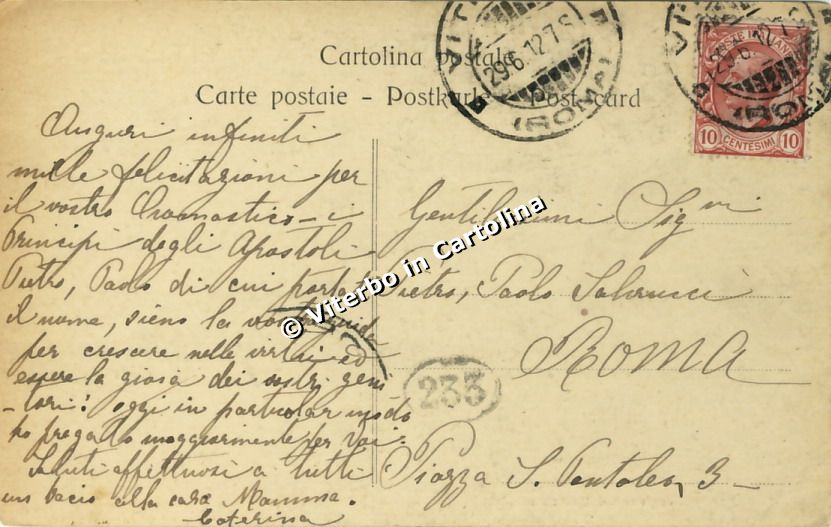 Cartolina postale
Carte postale - Postkarte - Post-card
VITERBO
29.6.12.7S
(ROMA)
VIT
(ROMA)
10 CENTESIMI 10
Auguri infiniti
mille felicitazioni per
il vostro Onomastico - i
Principi degli Apostoli
Pietro, Paolo di cui portate
il nome, sieno la vostra guida
per crescere nelle virtù ed
essere la gioia dei vostri geni
-tori! oggi in particolar modo
ho pregato maggiormente per Voi.
Saluti affettuosi a tutti
un bacio alla cara Mamma.
Caterina
Gentilissimi Sig.ri
Pietro, Paolo
ROMA
Piazza S. Pantaleo, 3-
233
© Viterbo in Cartolina